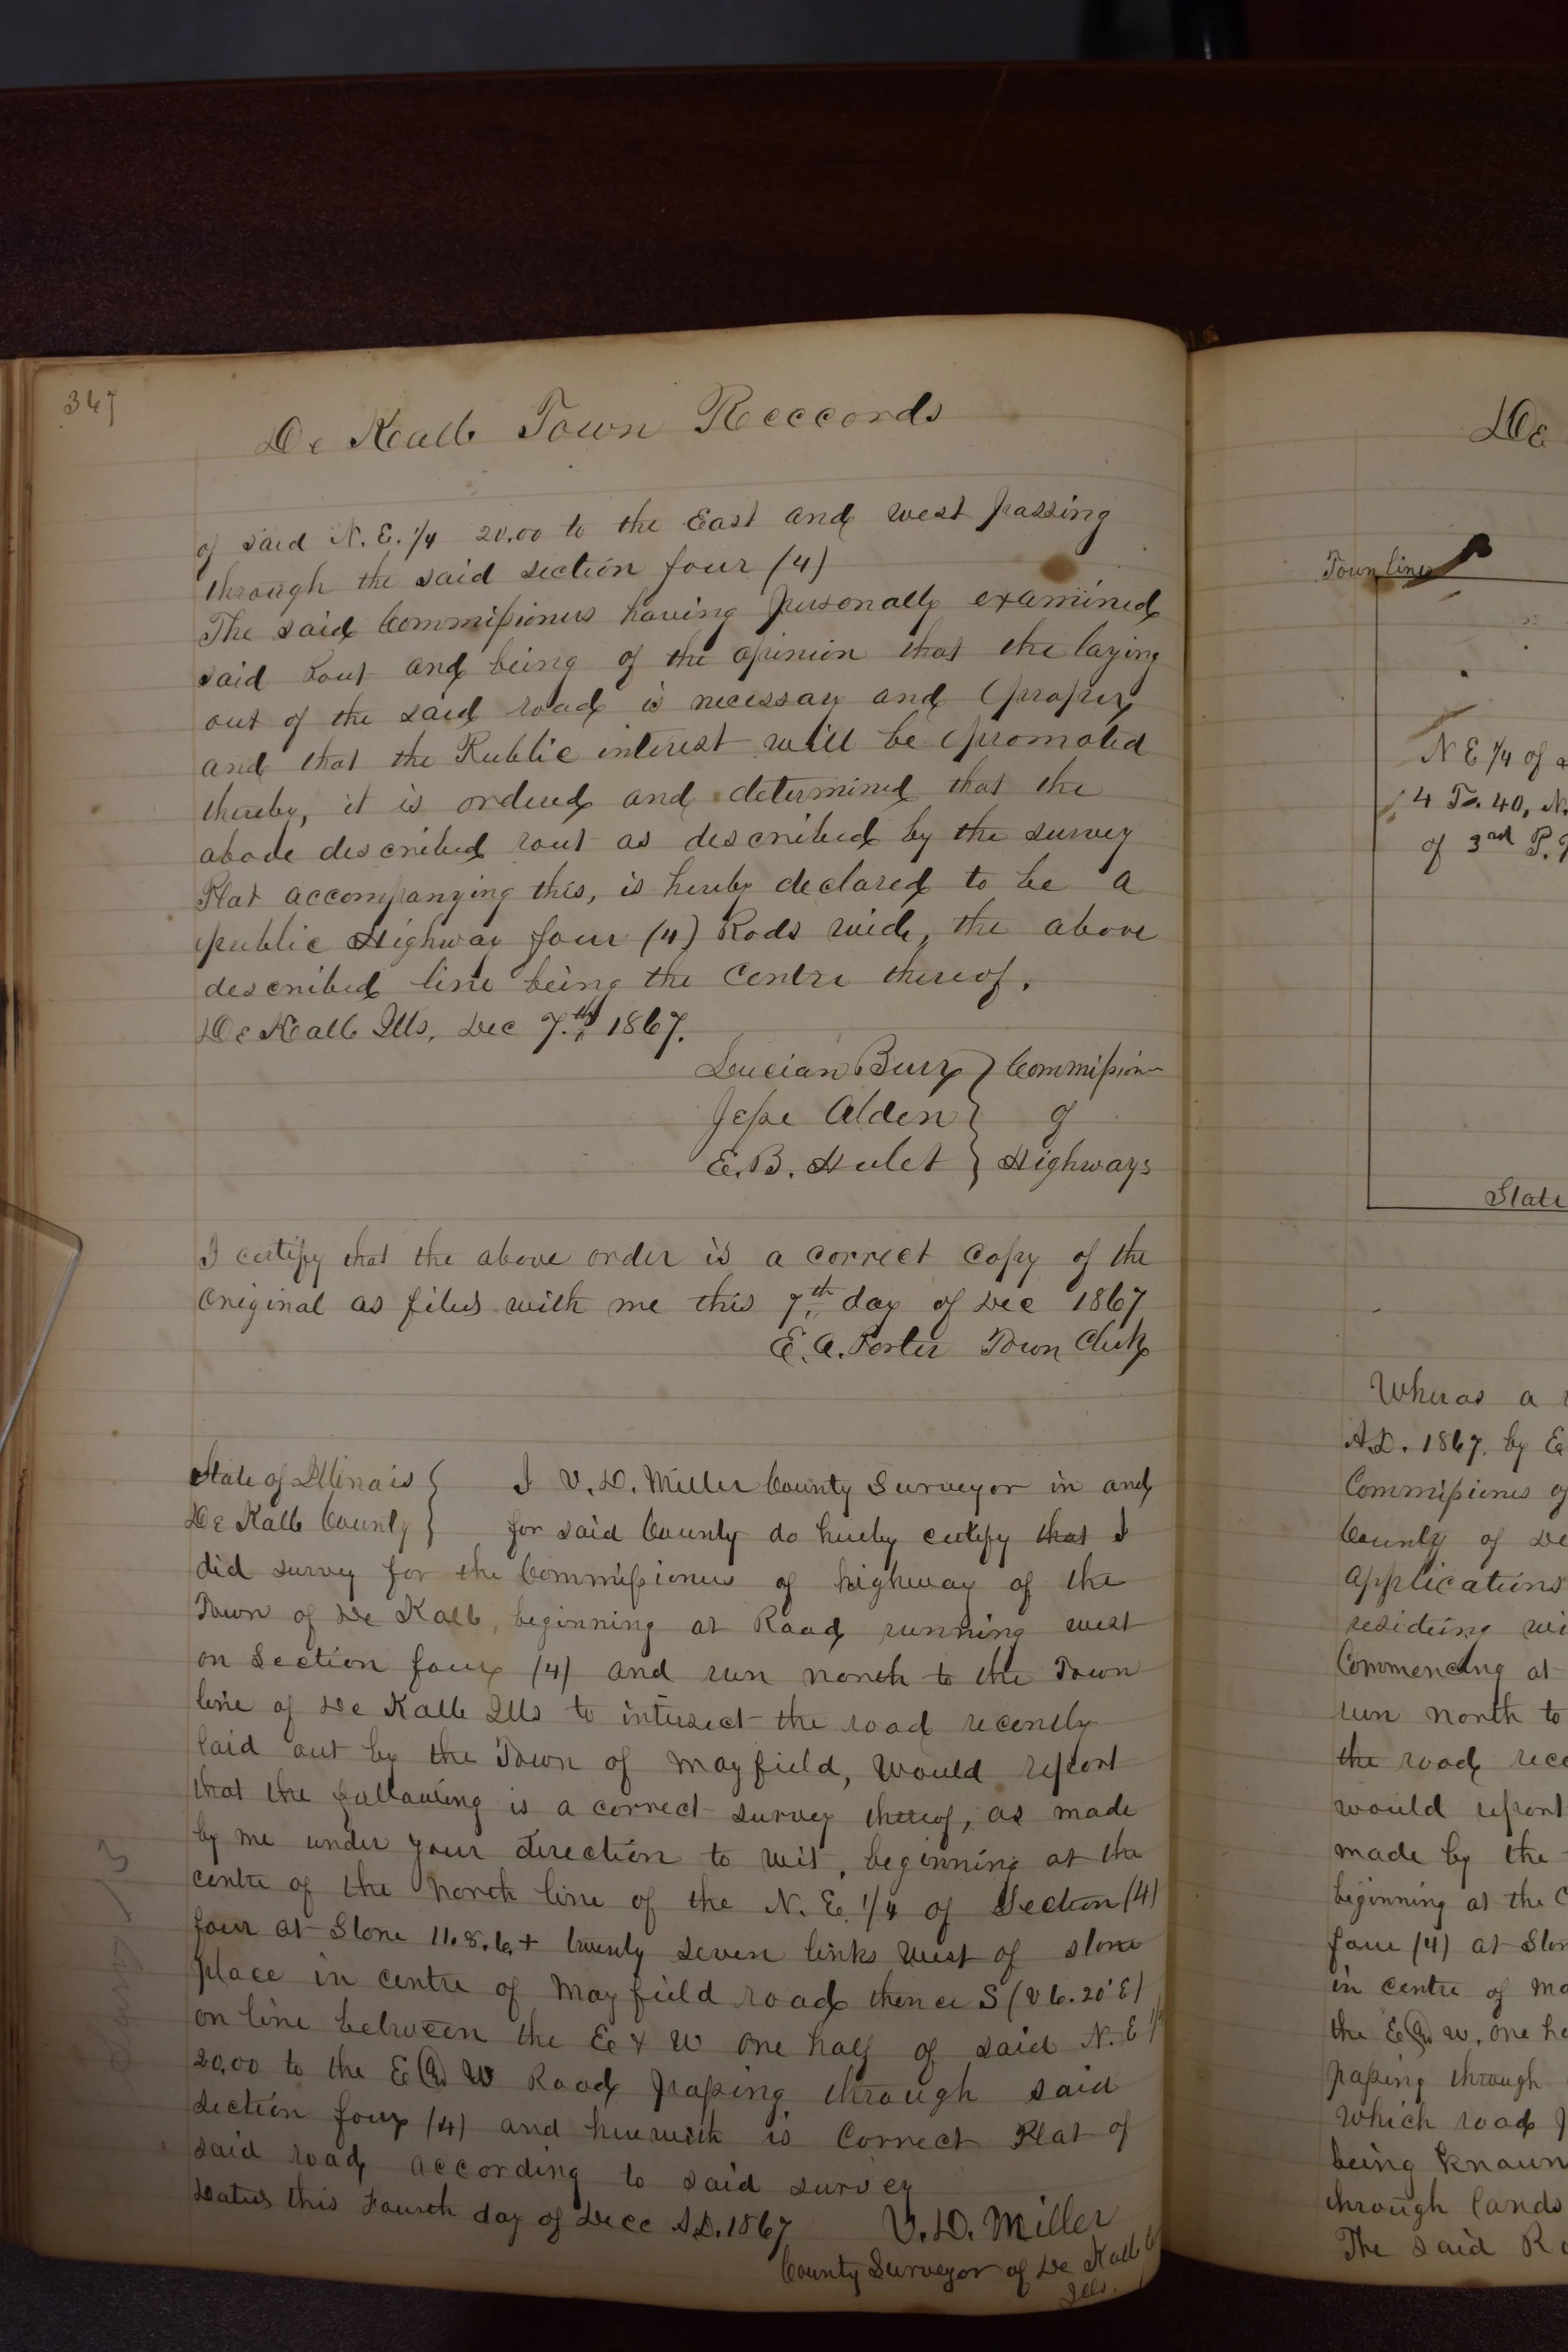 347
De Kalb Town Reccords
of said N. E. 1/4 20.00 to the East and west passing
through the said section four (4)
The said Commissioners having personally examined
said Rout and being of the opinion that the laying
out of the said road is necessary and proper,
and that the Public interest will be promoted
thereby, it is ordered and determined that the
above described rout as described by the survey
Plat accompanying this, is hereby declared to be a
public Highway four (4) Rods wide, the above
described line being the Centre thereof.
De Kalb Ills. Dec 7th 1867.
Lucian Burr } Commission
Jesse Alden } of
E. B. Hulet } Highways
I certify that the above order is a correct Copy of the
Original as filed with me this 7th day of Dec 1867
E. A. Porter Town Clerk
State of Illinois { I V. D. Miller County Surveyor in and
De Kalb County } for said County do hereby certify that I
did survey for the Commissioners of highway of the
Town of De Kalb, beginning at Road running west
on Section four (4) and run north to the Town
line of De Kalb Ills to intersect the road recently
laid out by the Town of Mayfield, would report
that the following is a correct survey thereof, as made
by me under your direction to wit, beginning at the
centre of the north line of the N. E. 1/4 of Section (4)
four at Stone 11.8.6.+ twenty seven links west of stone
place in centre of Mayfield road thence S (V 6.20' E)
on line between the E & W one half of said N. E 1/4
20.00 to the E & W Road passing through said
Section four (4) and herewith is Correct Plat of
said road according to said survey
Dated this Fourth day of Dec A.D. 1867 V. D. Miller
County Surveyor of De Kalb
Ills.
De
Town line
N E 1/4 of
4 T. 40, N.
of 3rd P.
State
Wheras a
A.D. 1867. by
Commissioners
County of
applications
residing
Commencing at
run north to
the road
would report
made by the
beginning at the
four (4) at
in centre of
the E & W. one
passing through
which road
being known
through lands
The said